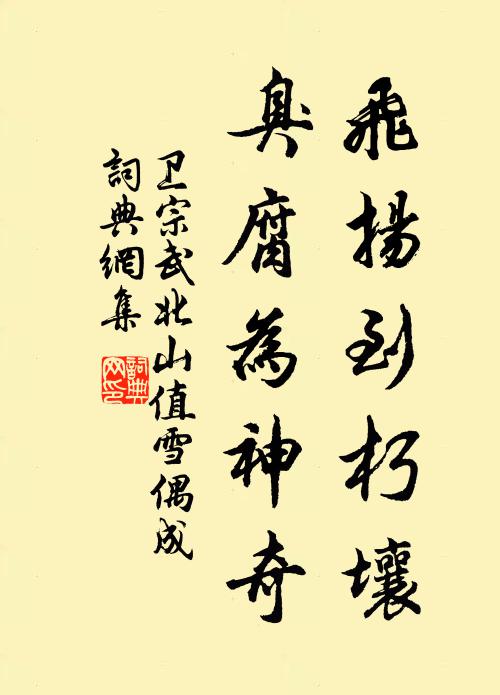 飛揚到朽壤
臭腐為神奇
卫宗武北山值雪偶成
詞典網集
詞典網印